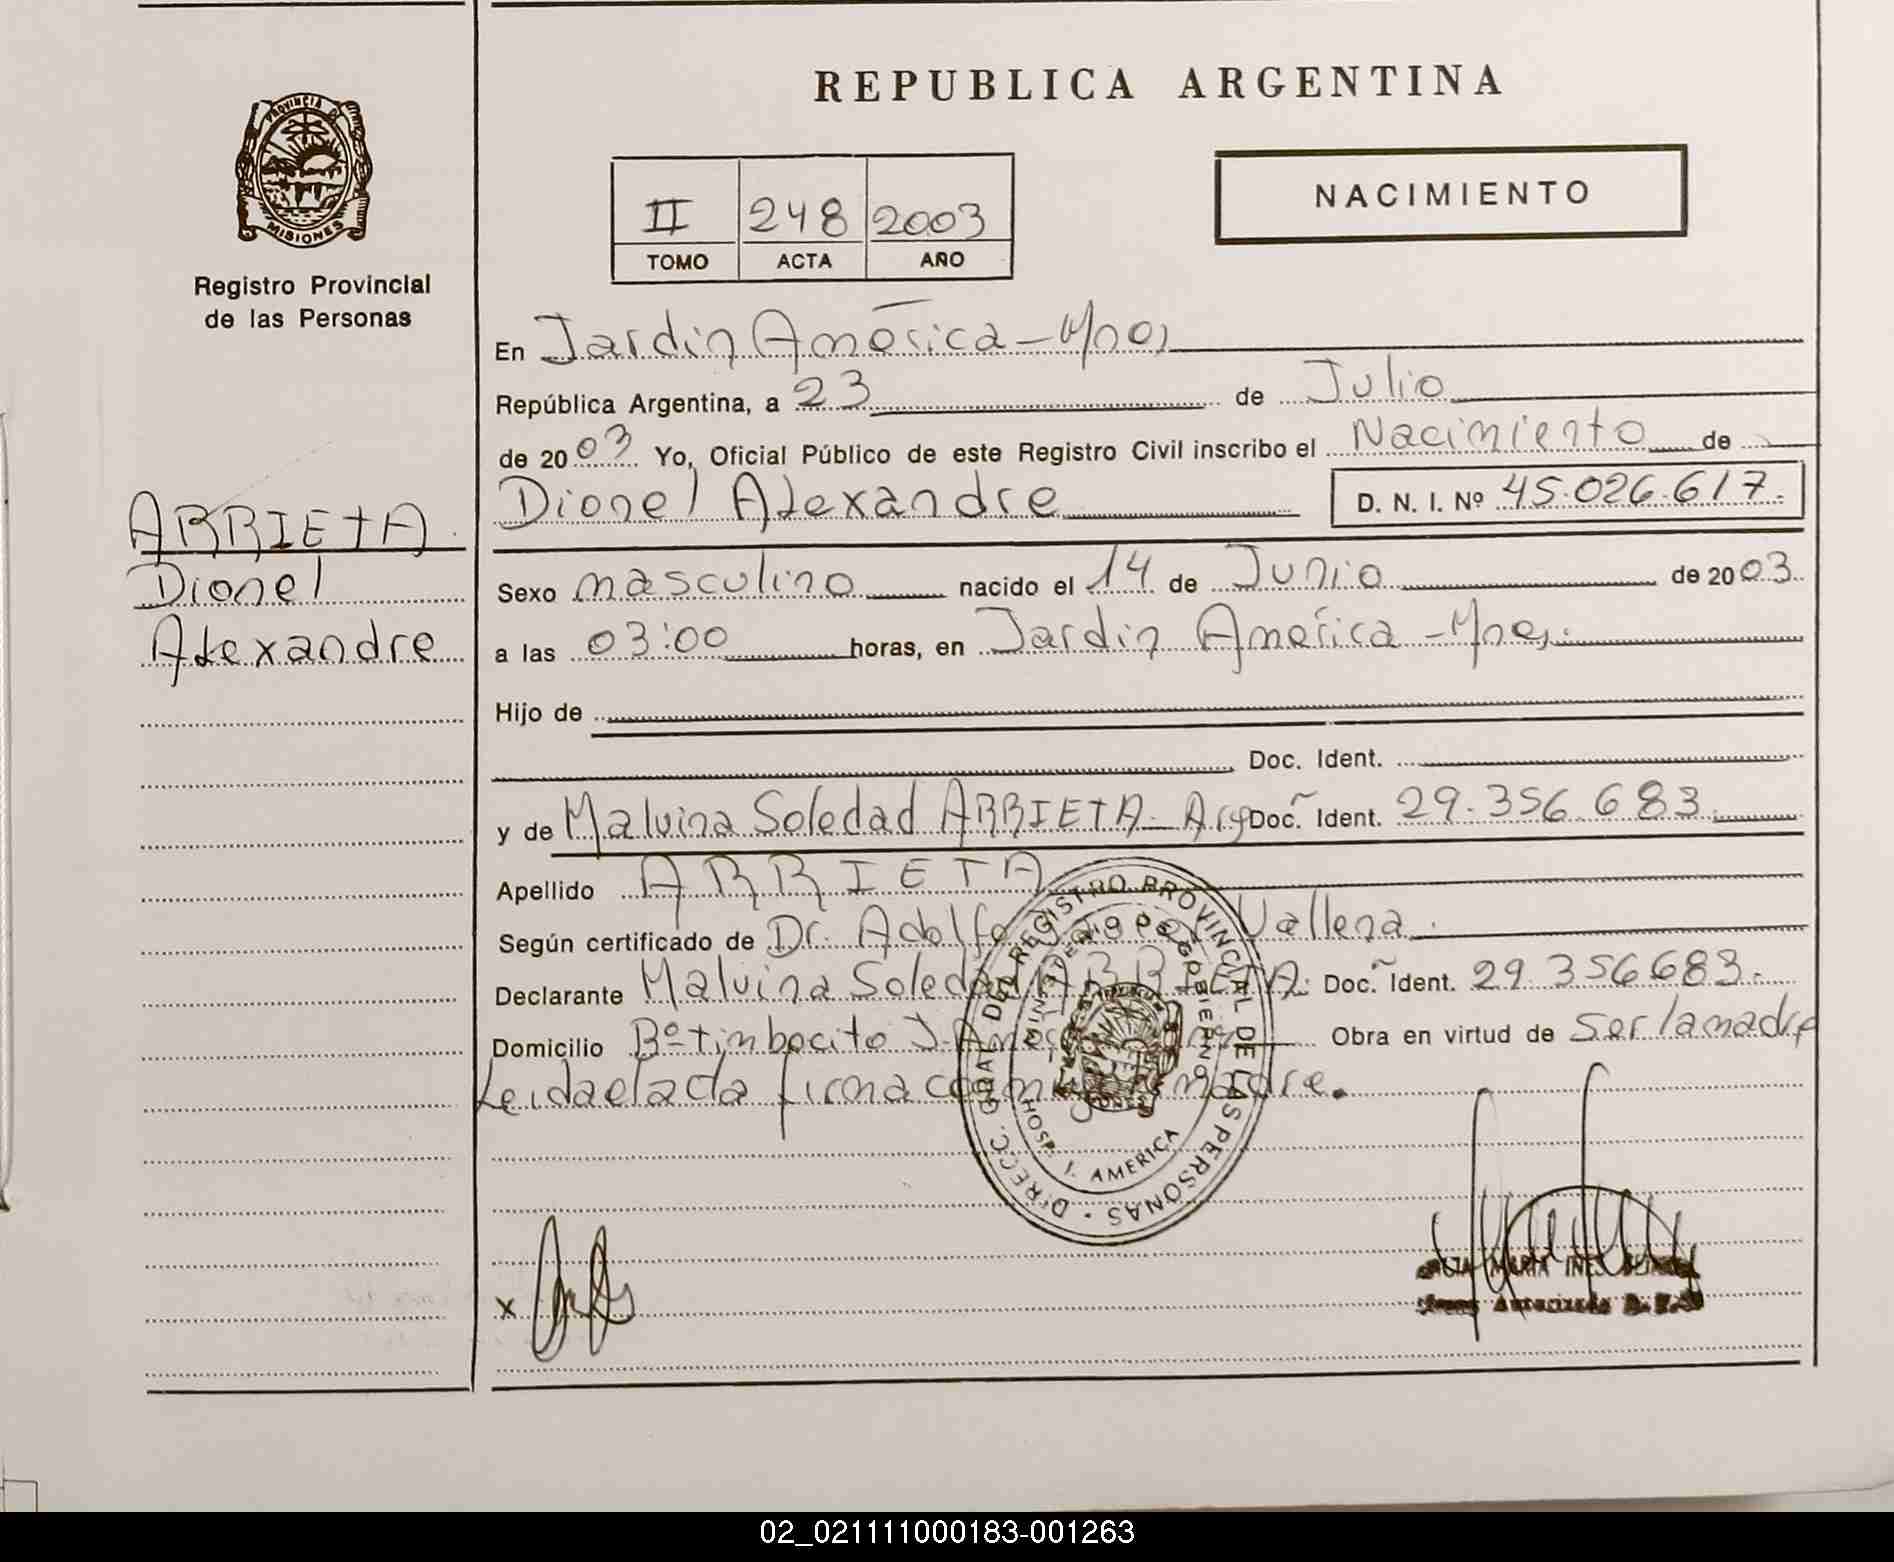 REPUBLICA ARGENTINA
PROVINCIA DE
MISIONES
Registro Provincial
de las Personas
II 248 2003
TOMO ACTA AÑO
NACIMIENTO
En Jardin América - Mnes
República Argentina, a 23 de Julio
de 2003 Yo, Oficial Público de este Registro Civil inscribo el Nacimiento de
Dionel Alexandre D. N. I. Nº 45.026.617.
ARRIETA
Dionel
Alexandre
Sexo masculino nacido el 14 de Junio de 2003
a las 03:00 horas, en Jardin América - Mnes.
Hijo de
Doc. Ident.
y de Malvina Soledad ARRIETA - Arg Doc. Ident. 29.356.683.
Apellido ARRIETA
Según certificado de Dr. Adolfo Vallena.
Declarante Malvina Soledad ARRIETA. Doc. Ident. 29.356683.
Domicilio Bº timbocito J. Obra en virtud de Ser la madre
Leida el acta firma conmigo la madre.
DIRECC. GRAL DEL REGISTRO PROVINCIAL DE LAS PERSONAS
MINISTERIO DE GOBIERNO
HOSP. J. AMERICA
x
MARIA INES
02_021111000183-001263